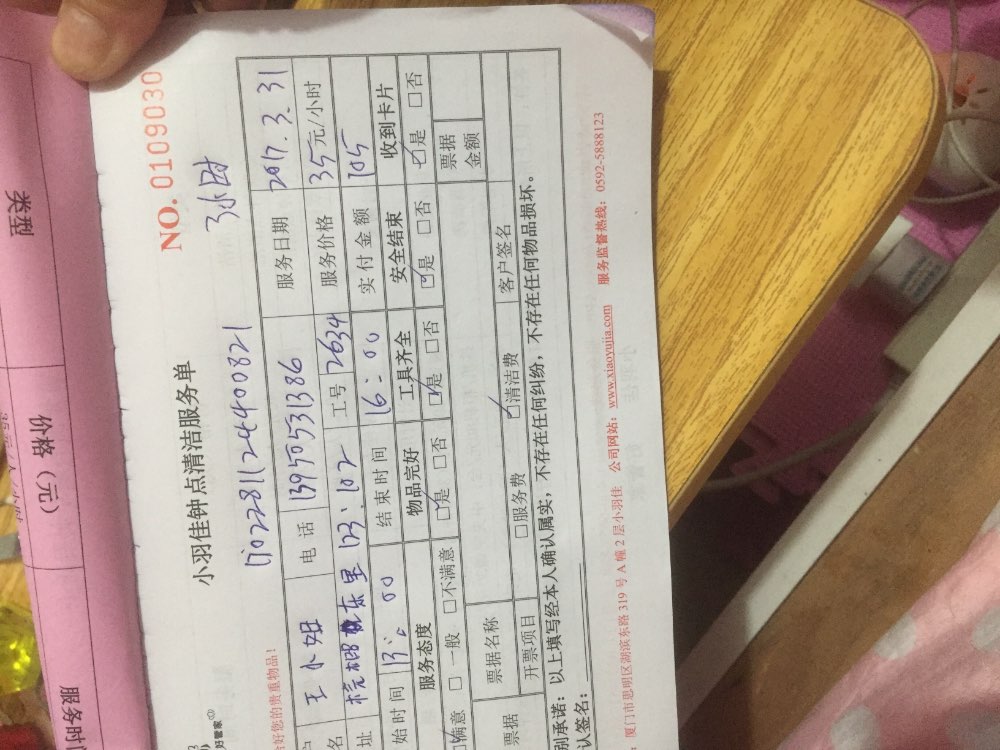 类型
价格（元）
服务时
NO. 0109030
小羽佳钟点清洁服务单
好管家
好您的贵重物品！
1702281124400821
户 王小姐 电 话 13950531386 服务日期 2017.3.31
名
址 槟榔东里 123:102 工号 2634 服务价格 35元/小时
始时间 13:00 结束时间 16:00 实付金额 105
服务态度 物品完好 工具齐全 安全结束 收到卡片
☑满意 □一般 □不满意 ☑是 □否 ☑是 □否 ☑是 □否 ☑是 □否
票据 票据名称 票据金额
开票项目 □服务费 ☑清洁费 客户签名
别承诺：以上填写经本人确认属实，不存在任何纠纷，不存在任何物品损坏。
认签名：
：厦门市思明区湖滨东路 319 号 A 幢 2 层小羽佳 公司网站：www.xiaoyujia.com 服务监督热线：0592-5888123